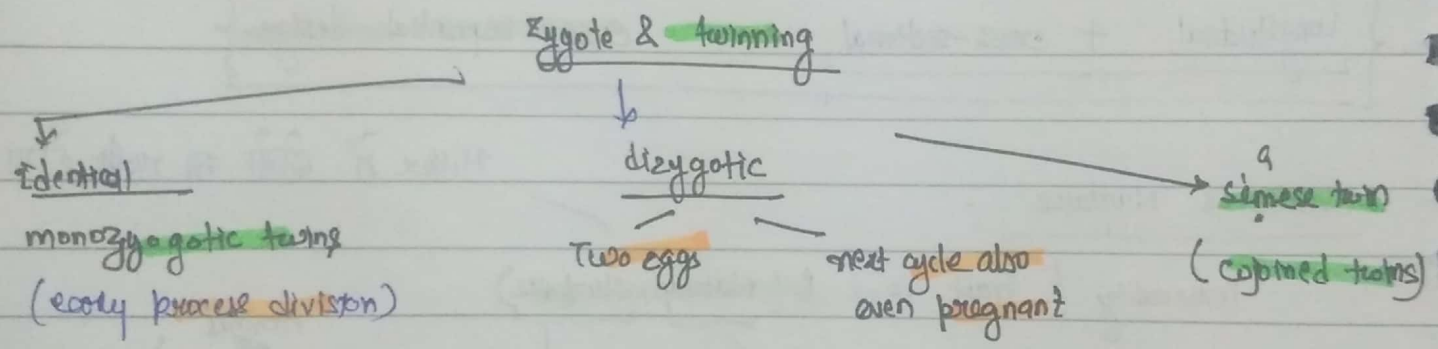 Zygote & twinning
Identical
monozygotic twins
(early process division)
dizygotic
Two eggs
next cycle also
even pregnant
simese twin
(cojoined twins)